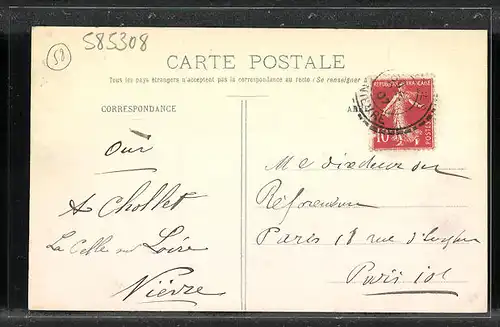 58
585308
CARTE POSTALE
Tous les pays étrangers n'acceptent pas la correspondance au recto (Se renseigner
CORRESPONDANCE
RÉPUBLIQUE FRANÇAISE
10
POSTES
Oui
A Chollet
La Celle sur Loire
Nièvre
Mr directeur du
Référendum
Paris 18 rue d'Enghien
Paris 10e